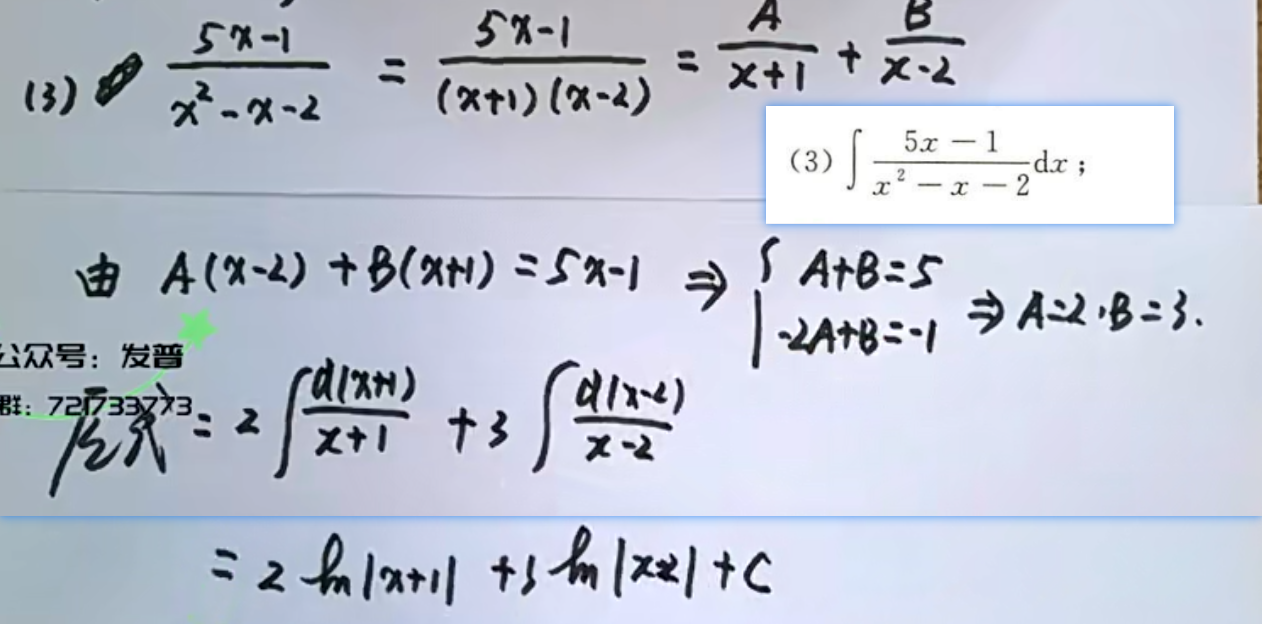 (3) (5x-1)/(x²-x-2) = (5x-1)/((x+1)(x-2)) = A/(x+1) + B/(x-2)
(3) ∫ (5x-1)/(x²-x-2) dx;
由 A(x-2)+B(x+1)=5x-1 ⇒ { A+B=5
-2A+B=-1 ⇒ A=2,B=3.
公众号：发普
群：721733773
原式 = 2∫ d(x+1)/(x+1) + 3∫ d(x-2)/(x-2)
= 2 ln|x+1| + 3 ln|x-2| + C